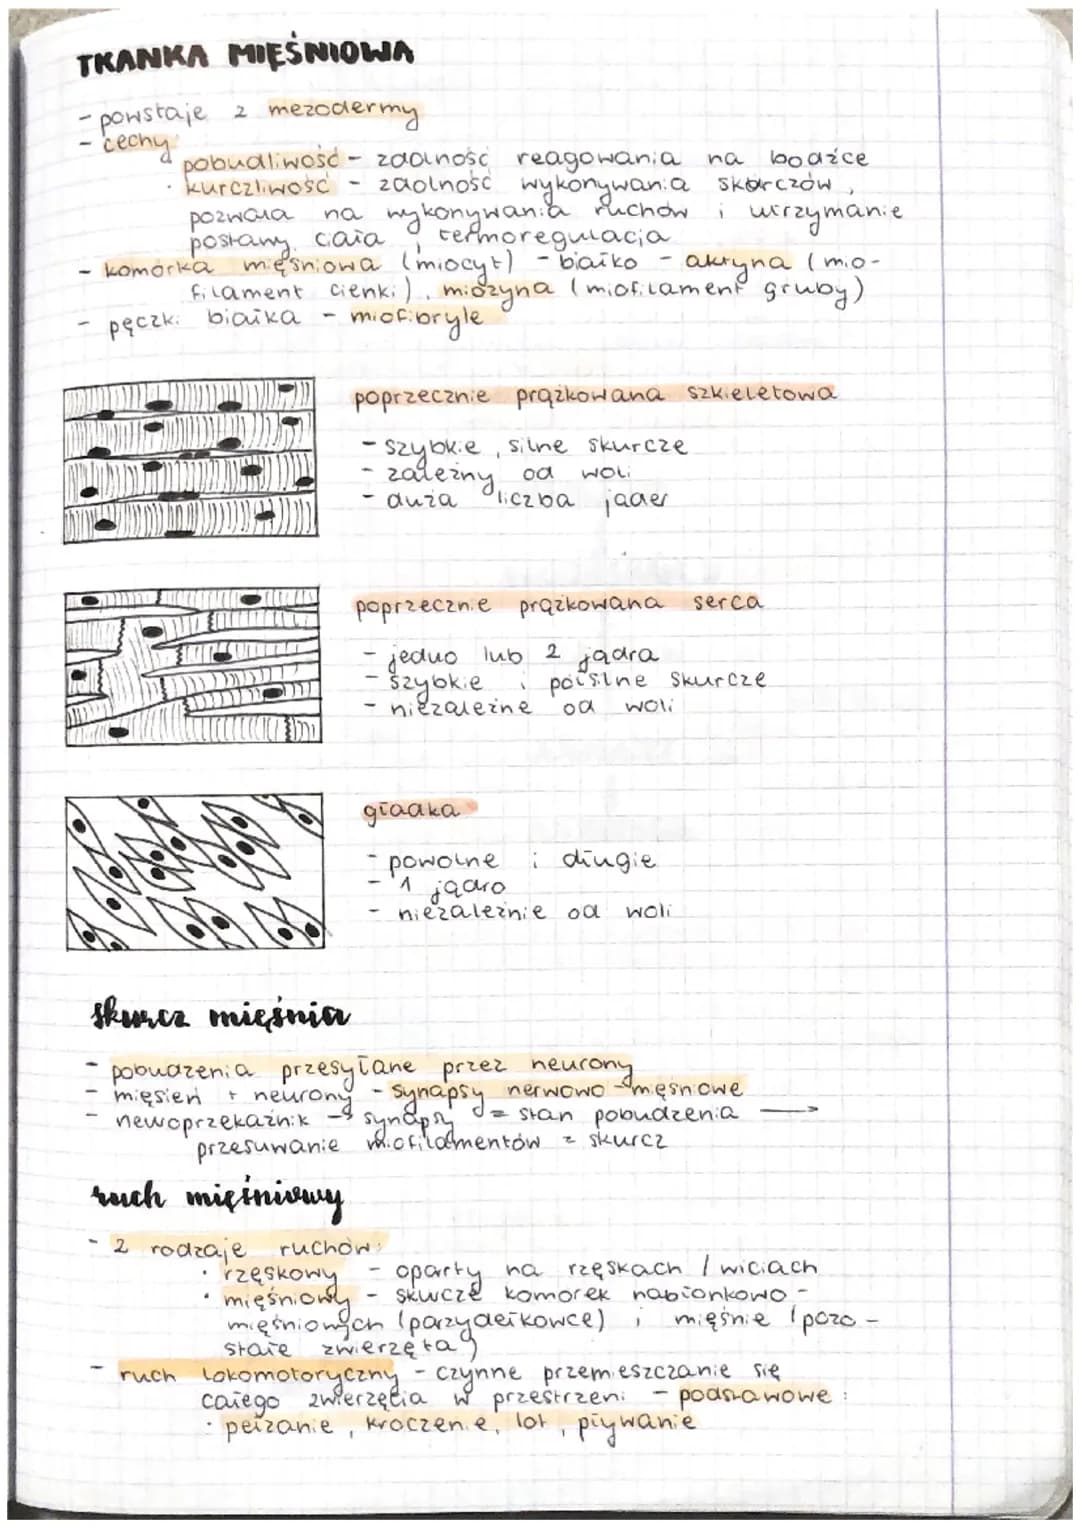 TKANKA MIĘŚNIOWA
- powstaje z mezodermy
- cechy:
pobudliwość - zdolność reagowania na bodźce
· kurczliwość - zdolność wykonywania skórczów,
pozwala na wykonywania ruchów i utrzymanie
postawy ciała, termoregulacja
- komórka mięśniowa (miocyt) - białko - aktyna (mio-
filament cienki), miozyna (miofilament gruby)
- pęczki białka - miofibryle
poprzecznie prążkowana szkieletowa
- szybkie, silne skurcze
- zależny od woli
- duża liczba jąder
poprzecznie prążkowana serca
- jedno lub 2 jądra
- szybkie i polsilne skurcze
- niezależne od woli
gładka
- powolne i długie
- 1 jądro
- niezależnie od woli
skurcz mięśnia
- pobudzenia przesyłane przez neurony
- mięsień + neurony - synapsy nerwowo-mięśniowe
- newoprzekaźnik → synapsy = stan pobudzenia →
przesuwanie miofilamentów = skurcz
ruch mięśniowy
- 2 rodzaje ruchów:
· rzęskowy - oparty na rzęskach / wiciach
· mięśniowy - skurcze komórek nabłonkowo-
mięśniowych (parzydełkowce) i mięśnie (pozo-
stałe zwierzęta)
- ruch lokomotoryczny - czynne przemieszczanie się
całego zwierzęcia w przestrzeni - podstawowe:
· pełzanie, kroczenie, lot, pływanie